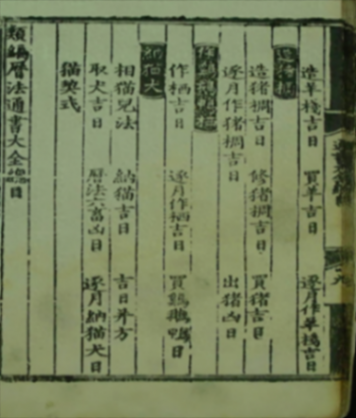 造羊棧吉日 買羊吉日 逐月作羊棧吉日
造猪椆
造猪椆吉日 修猪椆吉日 買猪吉日
逐月作猪椆吉日 出猪凶日
作栖吉日 逐月作栖吉日 買鷄鵝鴨日
納猫犬
相猫兒法 納猫吉日 吉日并方
取犬吉日 曆法六畜凶日 逐月納猫犬日
猫契式
類編曆法通書大全總目